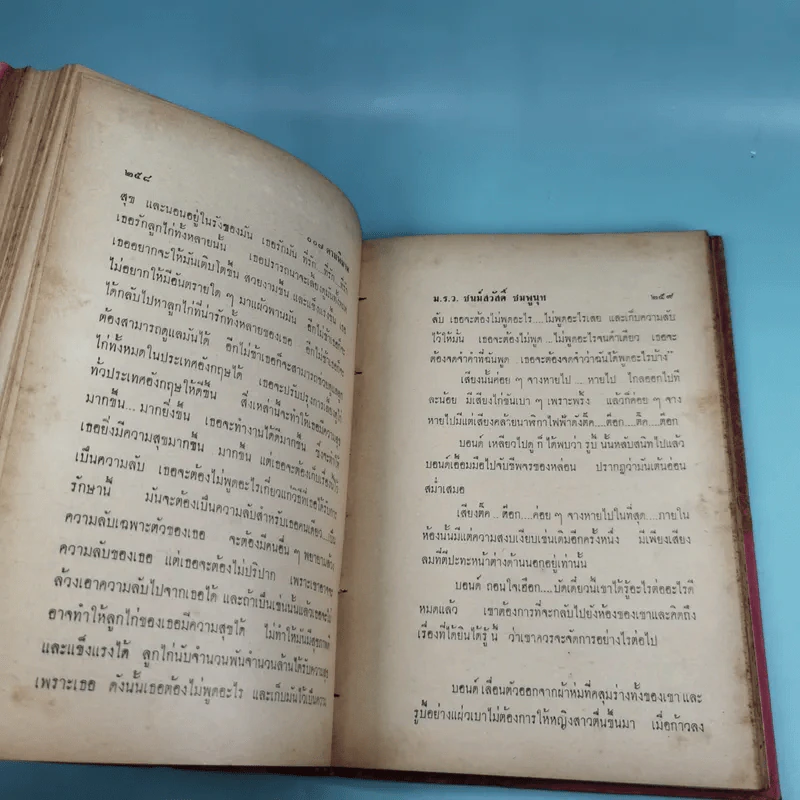 ๒๕๘
๐๐๗
สุข และนอนอยู่ในรังของมัน เธอรักมัน ที่รัก
เธอรักลูกไก่ทั้งหลายนั้น เธอปรารถนาจะเลี้ยงดู
เธออยากจะให้มันเติบโตขึ้น สวยงามขึ้น และแข็งแรงขึ้น เธอ
ไม่อยากให้มีอันตรายใด ๆ มาแผ้วพานมัน อีกไม่ช้าเธอก็จะ
ได้กลับไปหาลูกไก่ที่น่ารักทั้งหลายของเธอ อีกไม่ช้าเธอก็จะ
ต้องสามารถดูแลมันได้ อีกไม่ช้าเธอก็จะสามารถช่วย
ไก่ทั้งหมดในประเทศอังกฤษได้ เธอจะปรับปรุงการเลี้ยง
ทั่วประเทศอังกฤษให้ดีขึ้น สิ่งเหล่านี้จะทำให้เธอมีความสุข
มากขึ้น... มากยิ่งขึ้น เธอจะทำงานได้ดีมากขึ้น ซึ่งจะทำให้
เธอยิ่งมีความสุขมากขึ้น .. มากขึ้น แต่เธอจะต้องเก็บเรื่องนี้ไว้
เป็นความลับ เธอจะต้องไม่พูดอะไรเกี่ยวแก่วิธีที่เธอได้รับการ
รักษานี้ มันจะต้องเป็นความลับสำหรับเธอคนเดียว
ความลับเฉพาะตัวของเธอ จะต้องมีคนอื่น ๆ พยายามล้วง
ความลับของเธอ แต่เธอจะต้องไม่ปริปาก เพราะเขาอาจจะ
ล้วงเอาความลับไปจากเธอได้ และถ้าเป็นเช่นนั้นแล้วเธอจะไม่
อาจทำให้ลูกไก่ของเธอมีความสุขได้ ไม่ทำให้มันมีสุขภาพดี
และแข็งแรงได้ ลูกไก่นับจำนวนพันจำนวนล้านได้รับความสุข
เพราะเธอ ดังนั้นเธอต้องไม่พูดอะไร และเก็บมันไว้เป็นความ
ม.ร.ว. ชนม์สวัสดิ์ ชมพูนุท
๒๕๙
ลับ เธอจะต้องไม่พูดอะไร....ไม่พูดอะไรเลย และเก็บความลับ
ไว้ให้มั่น เธอจะต้องไม่พูด ...ไม่พูดอะไรจนคำเดียว เธอจะ
ต้องจดจำคำที่ฉันพูด ..เธอจะต้องจดจำว่าฉันได้พูดอะไรบ้าง"
เสียงนั้นค่อย ๆ จางหายไป ....หายไป ไกลออกไปที
ละน้อย มีเสียงไก่ขันเบา ๆ เพราะพริ้ง แล้วก็ค่อย ๆ จาง
หายไปมีแต่เสียงคล้ายนาฬิกาไฟฟ้าดังติ๊ก....ต๊อก....ติ๊ก....ต๊อก
บอนด์ เหลียวไปดู ก็ได้พบว่า รูบี้ นั้นหลับสนิทไปแล้ว
บอนด์เอื้อมมือไปจับชีพจรของหล่อน ปรากฏว่ามันเต้นอ่อน
สม่ำเสมอ
เสียงติ๊ก....ต๊อก....ค่อย ๆ จางหายไปในที่สุด....ภายใน
ห้องนั้นมีแต่ความสงบเงียบเช่นเดิมอีกครั้งหนึ่ง มีเพียงเสียง
ลมที่ตีปะทะหน้าต่างด้านนอกอยู่เท่านั้น
บอนด์ ถอนใจเฮือก....บัดเดี๋ยวนี้เขาได้รู้อะไรต่ออะไรดี
หมดแล้ว เขาต้องการที่จะกลับไปยังห้องของเขาและคิดถึง
เรื่องที่ได้ยินได้รู้นี้ ว่าเขาควรจะจัดการอย่างไรต่อไป
บอนด์ เลื่อนตัวออกจากผ้าห่มที่คลุมร่างทั้งของเขา และ
รูบี้อย่างแผ่วเบาไม่ต้องการให้หญิงสาวตื่นขึ้นมา เมื่อก้าวลง